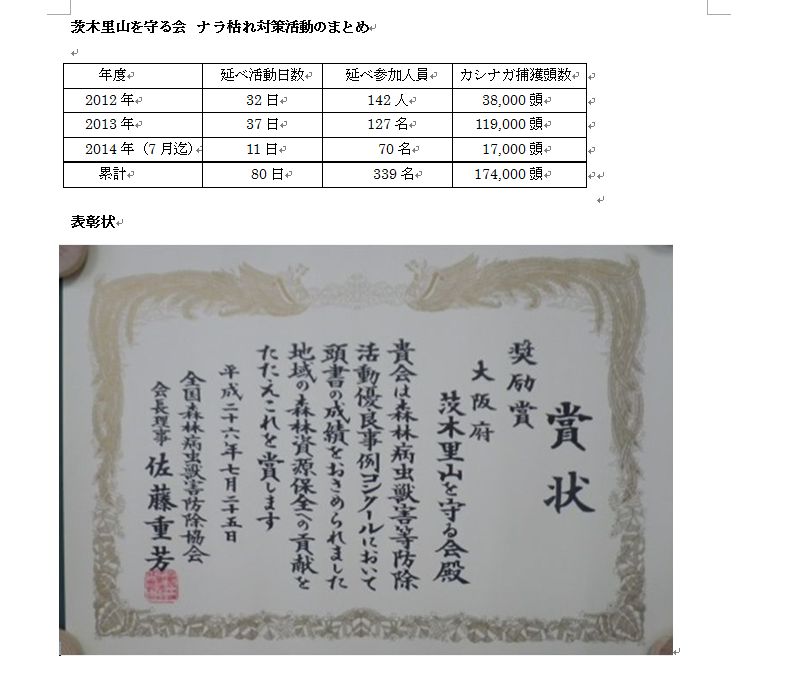 茨木里山を守る会 ナラ枯れ対策活動のまとめ
年度 延べ活動日数 延べ参加人員 カシナガ捕獲頭数
2012年 32日 142人 38,000頭
2013年 37日 127名 119,000頭
2014年（7月迄） 11日 70名 17,000頭
累計 80日 339名 174,000頭
表彰状
賞状
奨励賞
大阪府
茨木里山を守る会殿
貴会は森林病虫獣害等防除
活動優良事例コンクールにおいて
頭書の成績をおさめられました
地域の森林資源保全への貢献を
たたえこれを賞します
平成二十六年七月二十五日
全国森林病虫獣害防除協会
会長理事 佐藤重芳